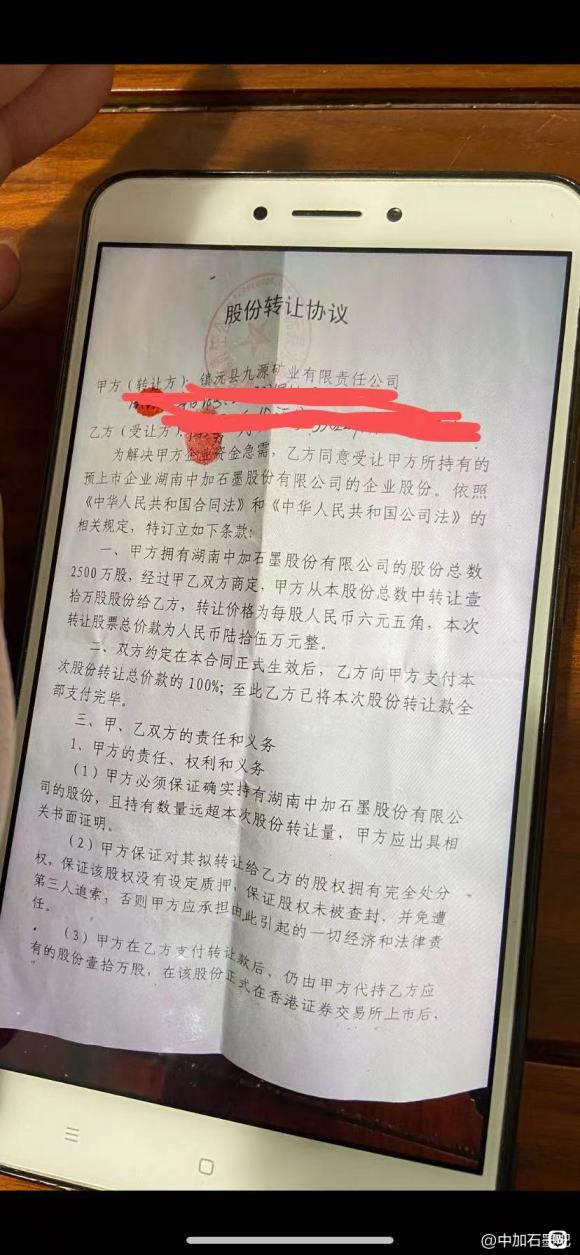 股份转让协议
甲方（转让方）：镇元县九源矿业有限责任公司
乙方（受让方）：
为解决甲方企业资金急需，乙方同意受让甲方所持有的
预上市企业湖南中加石墨股份有限公司的企业股份。依照
《中华人民共和国合同法》和《中华人民共和国公司法》的
相关规定，特订立如下条款：
一、甲方拥有湖南中加石墨股份有限公司的股份总数
2500万股，经过甲乙双方商定，甲方从本股份总数中转让壹
拾万股股份给乙方，转让价格为每股人民币六元五角，本次
转让股票总价款为人民币陆拾伍万元整。
二、双方约定在本合同正式生效后，乙方向甲方支付本
次股份转让总价款的100%；至此乙方已将本次股份转让款全
部支付完毕。
三、甲、乙双方的责任和义务
1、甲方的责任、权利和义务
（1）甲方必须保证确实持有湖南中加石墨股份有限公
司的股份，且持有数量远超本次股份转让量，甲方应出具相
关书面证明、
（2）甲方保证对其拟转让给乙方的股权拥有完全处分
权，保证该股权没有设定质押，保证股权未被查封，并免遭
第三人追索，否则甲方应承担由此引起的一切经济和法律责
任。
（3）甲方在乙方支付转让款后，仍由甲方代持乙方应
有的股份壹拾万股，在该股份正式在香港证券交易所上市后，
@中加石墨吧